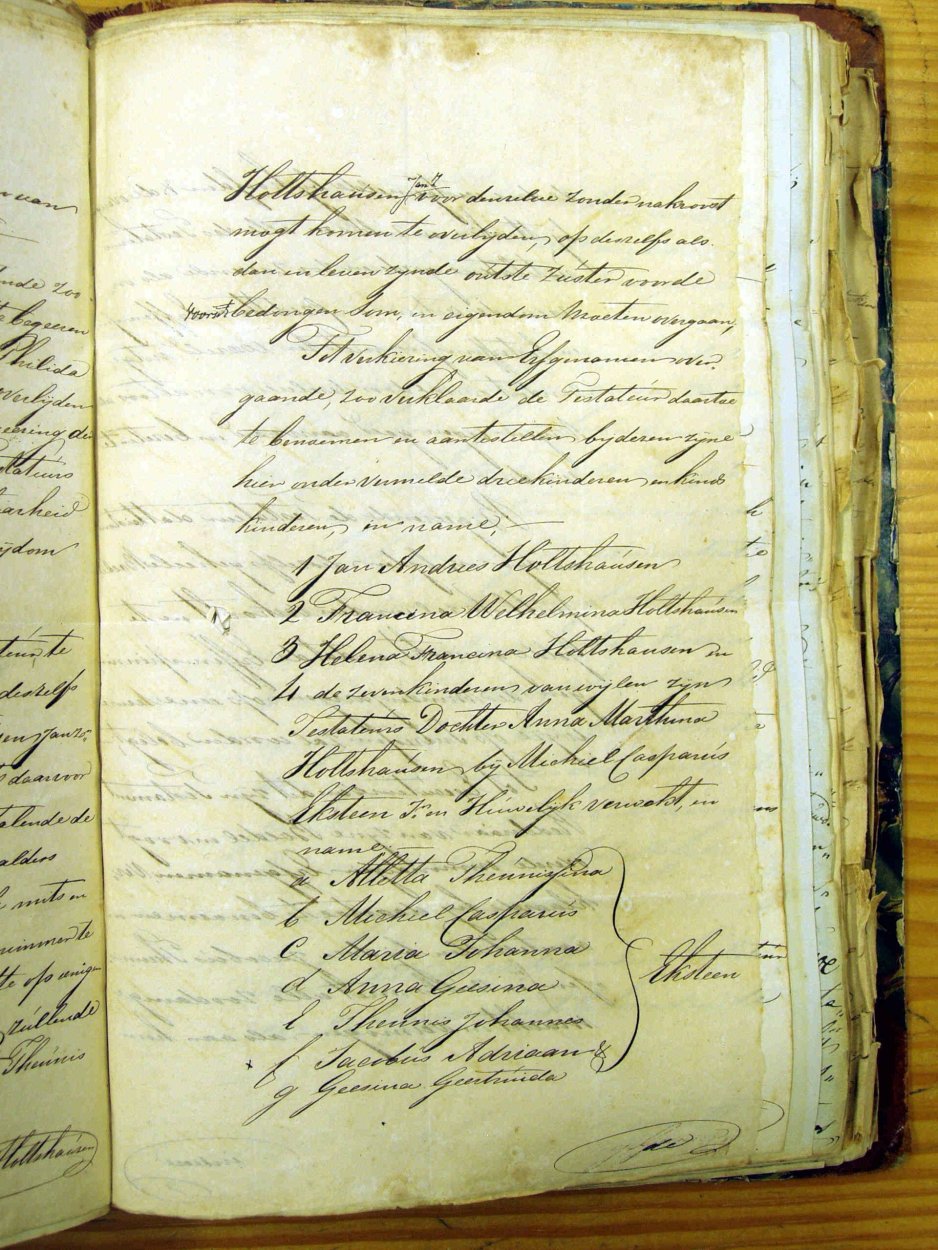 Holtshausen Janz voor denselve zonder nakroost
mogt komen te overlijden, op deszelfs als
dan in leven zynde outste Zuster voor de
voors: bedongen Som, in eigendom moeten overgaan,
Tot verkiering van Erfgenamen over
gaande, zoo verklaarde de Testateur daartoe
te benoemen en aantestellen by deren zyne
hier onder vermelde drie kinderen, en kinds
kinderen, in name, :—
1 Jan Andries Holtshausen
2 Francina Welhelmina Holtshausen
3 Helena Francina Holtshausen en
4 de zeven kinderen van wylen zyn
Testateurs Dochter Anna Marthina
Holtshausen by Michiel Casparus
Eksteen Sr. in Huwelyk verwekt, in
name
a Alletta Theunissina
b Michiel Casparus
c Maria Johanna
d Anna Geesina
e Theunis Johannes
f Jacobus Adriaan &
g Geesina Geertruida
Eksteen
de
van
ande zoo
te begeeren
Philida
overlijden
tateurs
aarheid
deszelfs
en Janz:
daarvoor
talende de
alders
op eenige
zullende
Theunis
Holtshausen